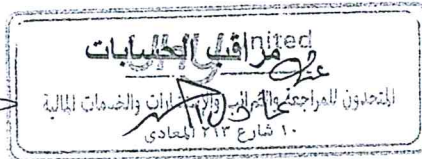 مراقب الحسابات
المتحدون للمراجعة والضرائب والإستشارات والخدمات المالية
١٠ شارع ٢١٣ المعادى